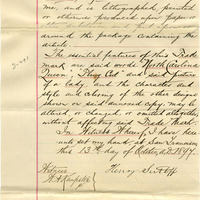 me, and is lithographed, printed
or otherwise produced upon paper or
around the package containing the
article.
The essential features of this Trade
mark are said words "North Carolina
Queen", "Plug Cut" and said picture
of a lady, and the character and
style and coloring of the other designs
shown on said annexed copy, may be
altered or changed, or omitted altogether,
without affecting said Trade Mark.
In Witness Whereof, I have here
unto set my hand at San Francisco
this 13th day of October A.D. 1897.
Witness Henry